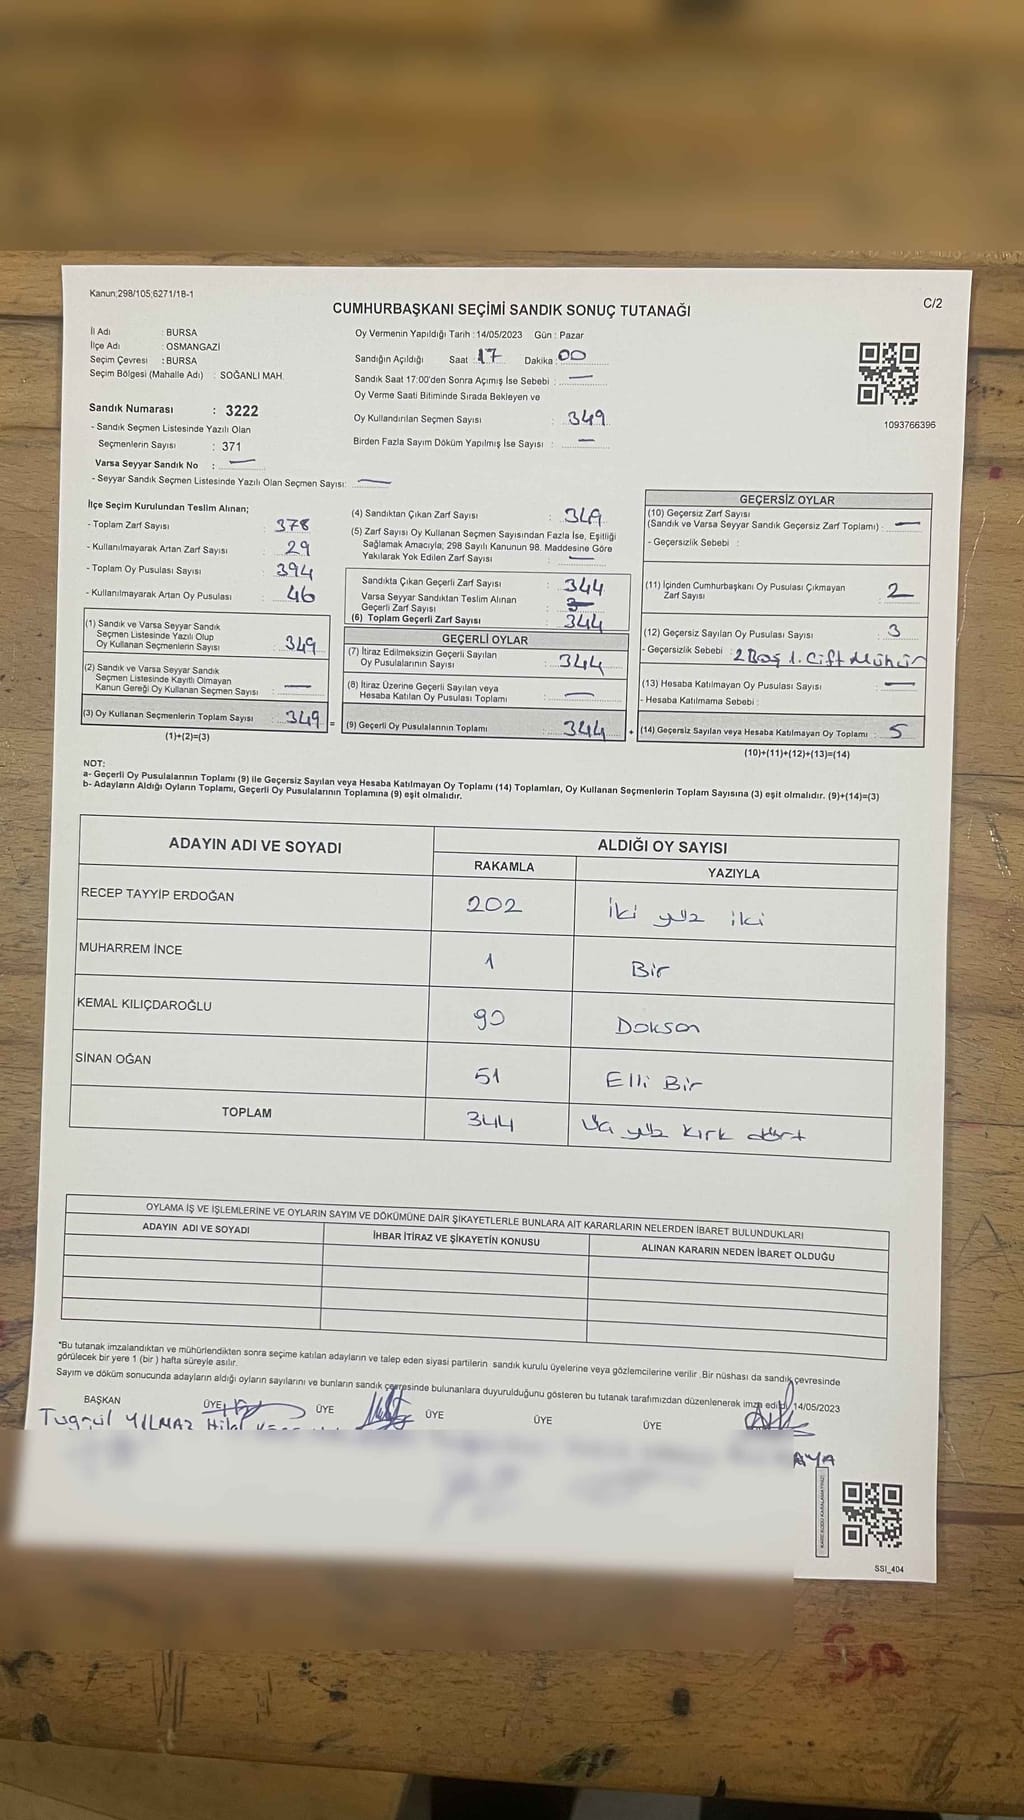 Kanun;298/105;6271/18-1
C/2
CUMHURBAŞKANI SEÇİMİ SANDIK SONUÇ TUTANAĞI
İl Adı : BURSA
İlçe Adı : OSMANGAZİ
Seçim Çevresi : BURSA
Seçim Bölgesi (Mahalle Adı) : SOĞANLI MAH.
Sandık Numarası : 3222
- Sandık Seçmen Listesinde Yazılı Olan
Seçmenlerin Sayısı : 371
Varsa Seyyar Sandık No : —
- Seyyar Sandık Seçmen Listesinde Yazılı Olan Seçmen Sayısı: —
Oy Vermenin Yapıldığı Tarih : 14/05/2023 Gün : Pazar
Sandığın Açıldığı Saat : 17 Dakika : 00
Sandık Saat 17:00'den Sonra Açımış İse Sebebi : —
Oy Verme Saati Bitiminde Sırada Bekleyen ve
Oy Kullandırılan Seçmen Sayısı : 349
Birden Fazla Sayım Döküm Yapılmış İse Sayısı : —
1093766396
İlçe Seçim Kurulundan Teslim Alınan;
- Toplam Zarf Sayısı : 378
- Kullanılmayarak Artan Zarf Sayısı : 29
- Toplam Oy Pusulası Sayısı : 394
- Kullanılmayarak Artan Oy Pusulası : 46
(1) Sandık ve Varsa Seyyar Sandık
Seçmen Listesinde Yazılı Olup
Oy Kullanan Seçmenlerin Sayısı : 349
(2) Sandık ve Varsa Seyyar Sandık
Seçmen Listesinde Kayıtlı Olmayan
Kanun Gereği Oy Kullanan Seçmen Sayısı : —
(3) Oy Kullanan Seçmenlerin Toplam Sayısı : 349 =
(1)+(2)=(3)
(4) Sandıktan Çıkan Zarf Sayısı : 349
(5) Zarf Sayısı Oy Kullanan Seçmen Sayısından Fazla İse, Eşitliği
Sağlamak Amacıyla; 298 Sayılı Kanunun 98. Maddesine Göre
Yakılarak Yok Edilen Zarf Sayısı : —
Sandıkta Çıkan Geçerli Zarf Sayısı : 344
Varsa Seyyar Sandıktan Teslim Alınan
Geçerli Zarf Sayısı :
(6) Toplam Geçerli Zarf Sayısı : 344
GEÇERLİ OYLAR
(7) İtiraz Edilmeksizin Geçerli Sayılan
Oy Pusulalarının Sayısı : 344
(8) İtiraz Üzerine Geçerli Sayılan veya
Hesaba Katılan Oy Pusulası Toplamı : —
(9) Geçerli Oy Pusulalarının Toplamı : 344 +
GEÇERSİZ OYLAR
(10) Geçersiz Zarf Sayısı
(Sandık ve Varsa Seyyar Sandık Geçersiz Zarf Toplamı) : —
- Geçersizlik Sebebi :
(11) İçinden Cumhurbaşkanı Oy Pusulası Çıkmayan
Zarf Sayısı : 2
(12) Geçersiz Sayılan Oy Pusulası Sayısı : 3
- Geçersizlik Sebebi : 2 Boş 1. Çift Mühür
(13) Hesaba Katılmayan Oy Pusulası Sayısı : —
- Hesaba Katılmama Sebebi :
(14) Geçersiz Sayılan veya Hesaba Katılmayan Oy Toplamı : 5
(10)+(11)+(12)+(13)=(14)
NOT:
a- Geçerli Oy Pusulalarının Toplamı (9) ile Geçersiz Sayılan veya Hesaba Katılmayan Oy Toplamı (14) Toplamları, Oy Kullanan Seçmenlerin Toplam Sayısına (3) eşit olmalıdır. (9)+(14)=(3)
b- Adayların Aldığı Oyların Toplamı, Geçerli Oy Pusulalarının Toplamına (9) eşit olmalıdır.
ADAYIN ADI VE SOYADI ALDIĞI OY SAYISI
RAKAMLA YAZIYLA
RECEP TAYYİP ERDOĞAN 202 İki yüz iki
MUHARREM İNCE 1 Bir
KEMAL KILIÇDAROĞLU 90 Doksan
SİNAN OĞAN 51 Elli Bir
TOPLAM 344 Üç yüz kırk dört
OYLAMA İŞ VE İŞLEMLERİNE VE OYLARIN SAYIM VE DÖKÜMÜNE DAİR ŞİKAYETLERLE BUNLARA AİT KARARLARIN NELERDEN İBARET BULUNDUKLARI
ADAYIN ADI VE SOYADI İHBAR İTİRAZ VE ŞİKAYETİN KONUSU ALINAN KARARIN NEDEN İBARET OLDUĞU
*Bu tutanak imzalandıktan ve mühürlendikten sonra seçime katılan adayların ve talep eden siyasi partilerin sandık kurulu üyelerine veya gözlemcilerine verilir. Bir nüshası da sandık çevresinde
görülecek bir yere 1 (bir) hafta süreyle asılır.
Sayım ve döküm sonucunda adayların aldığı oyların sayılarını ve bunların sandık çevresinde bulunanlara duyurulduğunu gösteren bu tutanak tarafımızdan düzenlenerek imza edildi. 14/05/2023
BAŞKAN ÜYE ÜYE ÜYE ÜYE ÜYE
Tuğrul YILMAZ Hilal
AYA
KARE KODU KARALAMAYINIZ!
SSI_404